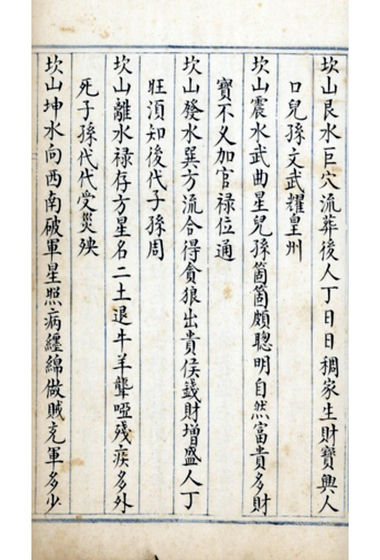 坎山艮水巨穴流葬後人丁日日稠家生財寶興人
口兒孫文武耀皇州
坎山震水武曲星兒孫箇箇頗聰明自然富貴多財
寶不乂加官禄位通
坎山發水巽方流合得貪狼出貴侯錢財增盛人丁
旺須知後代子孫周
坎山離水禄存方星名二土退牛羊聾啞殘疾多外
死子孫代代受災殃
坎山坤水向西南破軍星照病纏綿做賊充軍多少